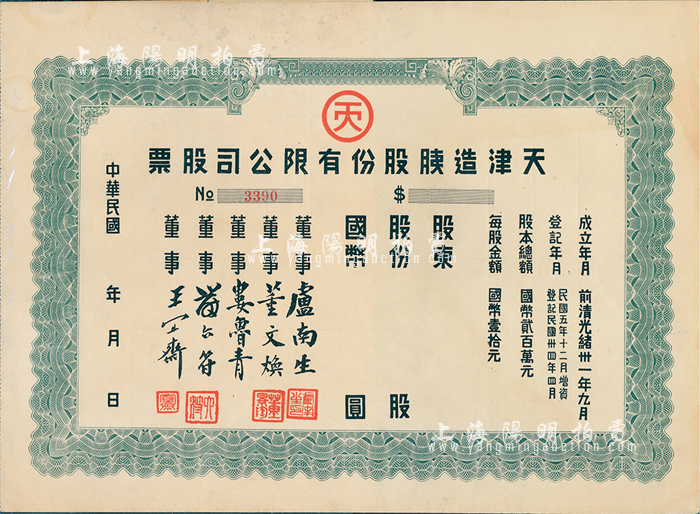 上海陽明拍賣
www.yangmingauction.com
天
天津造胰股份有限公司股票
$
№ 3390
成立年月 前清光緒卅一年九月
登記年月 民國五年十二月增資 登記民國卅四年四月
股本總額 國幣貳百萬元
每股金額 國幣壹拾元
股東
股份 股
國幣 圓
董事 盧南生
董事 董文煥
董事 婁魯青
董事
董事 王宜齋
中華民國 年 月 日
上海陽明拍賣
www.yangmingauction.com
上海陽明拍賣
www.yangmingauction.com